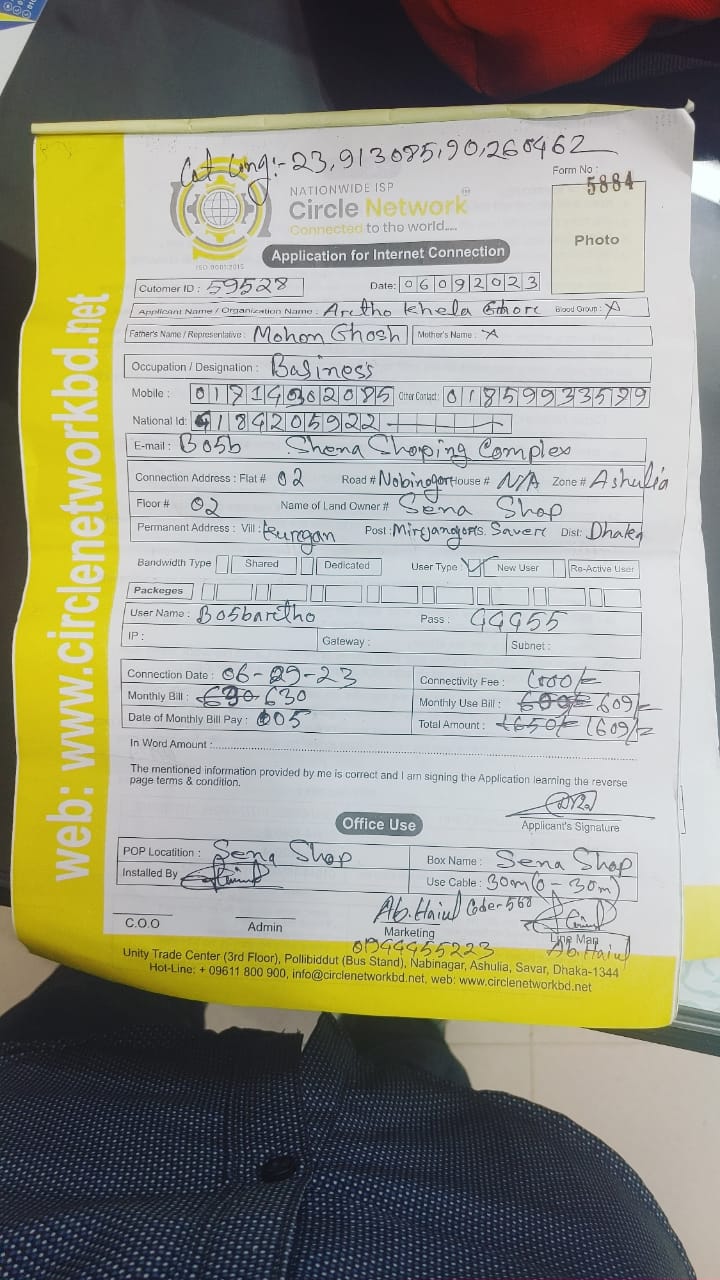 Lat Long:- 23,913085,90,260462
NATIONWIDE ISP
Form No :
5884
Circle Network
Connected to the world....
Photo
ISO 9001:2015
Application for Internet Connection
Cutomer ID : 59528 Date: 06092023
Applicant Name / Organization Name : Aretho khela Ghore Blood Group : X
Father's Name / Representative : Mohon Ghosh Mother's Name : X
Occupation / Designation : Business
Mobile : Other Contact: 01859933599
National Id:
E-mail : B05b Shena Shoping Complex
Connection Address : Flat # 02 Road # Nobinogor House # N/A Zone # Ashulia
Floor # 02 Name of Land Owner # Sena Shop
Permanent Address : Vill : Post : Dist: Dhaka
Bandwidth Type Shared Dedicated User Type New User Re-Active User
Packeges
User Name : B05baretho Pass : 44955
IP : Gateway : Subnet :
Connection Date : 06-09-23 Connectivity Fee : 1000/=
Monthly Bill : 630 Monthly Use Bill : 609/=
Date of Monthly Bill Pay : 05 Total Amount : 1609/=
In Word Amount :
The mentioned information provided by me is correct and I am signing the Application learning the reverse
page terms & condition.
Applicant's Signature
Office Use
POP Locatition : Sena Shop Box Name : Sena Shop
Installed By Use Cable : 30m(0-30m)
Ab.Haiul Coder-560
C.O.O Admin Marketing Line Man
01944455223 Ab.Haiul
Unity Trade Center (3rd Floor), Pollibiddut (Bus Stand), Nabinagar, Ashulia, Savar, Dhaka-1344
Hot-Line: + 09611 800 900, info@circlenetworkbd.net, web: www.circlenetworkbd.net
web: www.circlenetworkbd.net